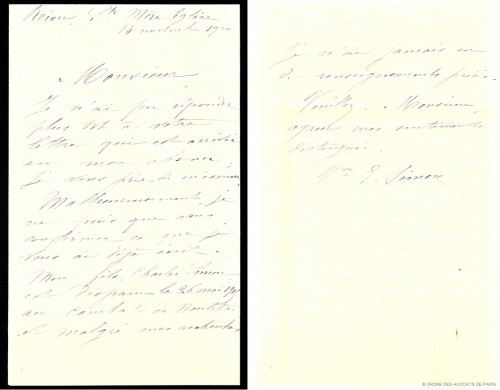 Ste Mère Eglise
14 novembre 19
Monsieur,
Je n'ai pu répondre
plus tôt à votre
lettre qui est arrivée
en mon absence.
Je vous prie de m'excuser.
Malheureusement, je
ne puis que vous
confirmer ce que je
vous ai déjà écrit.
Mon fils, Charles Simon
est disparu le 26 mai
au combat de
et malgré mes recherches,
je n'ai jamais eu
de renseignements précis.
Veuillez, Monsieur,
agréer mes sentiments
distingués.
Vve E. Simon
© ORDRE DES AVOCATS DE PARIS